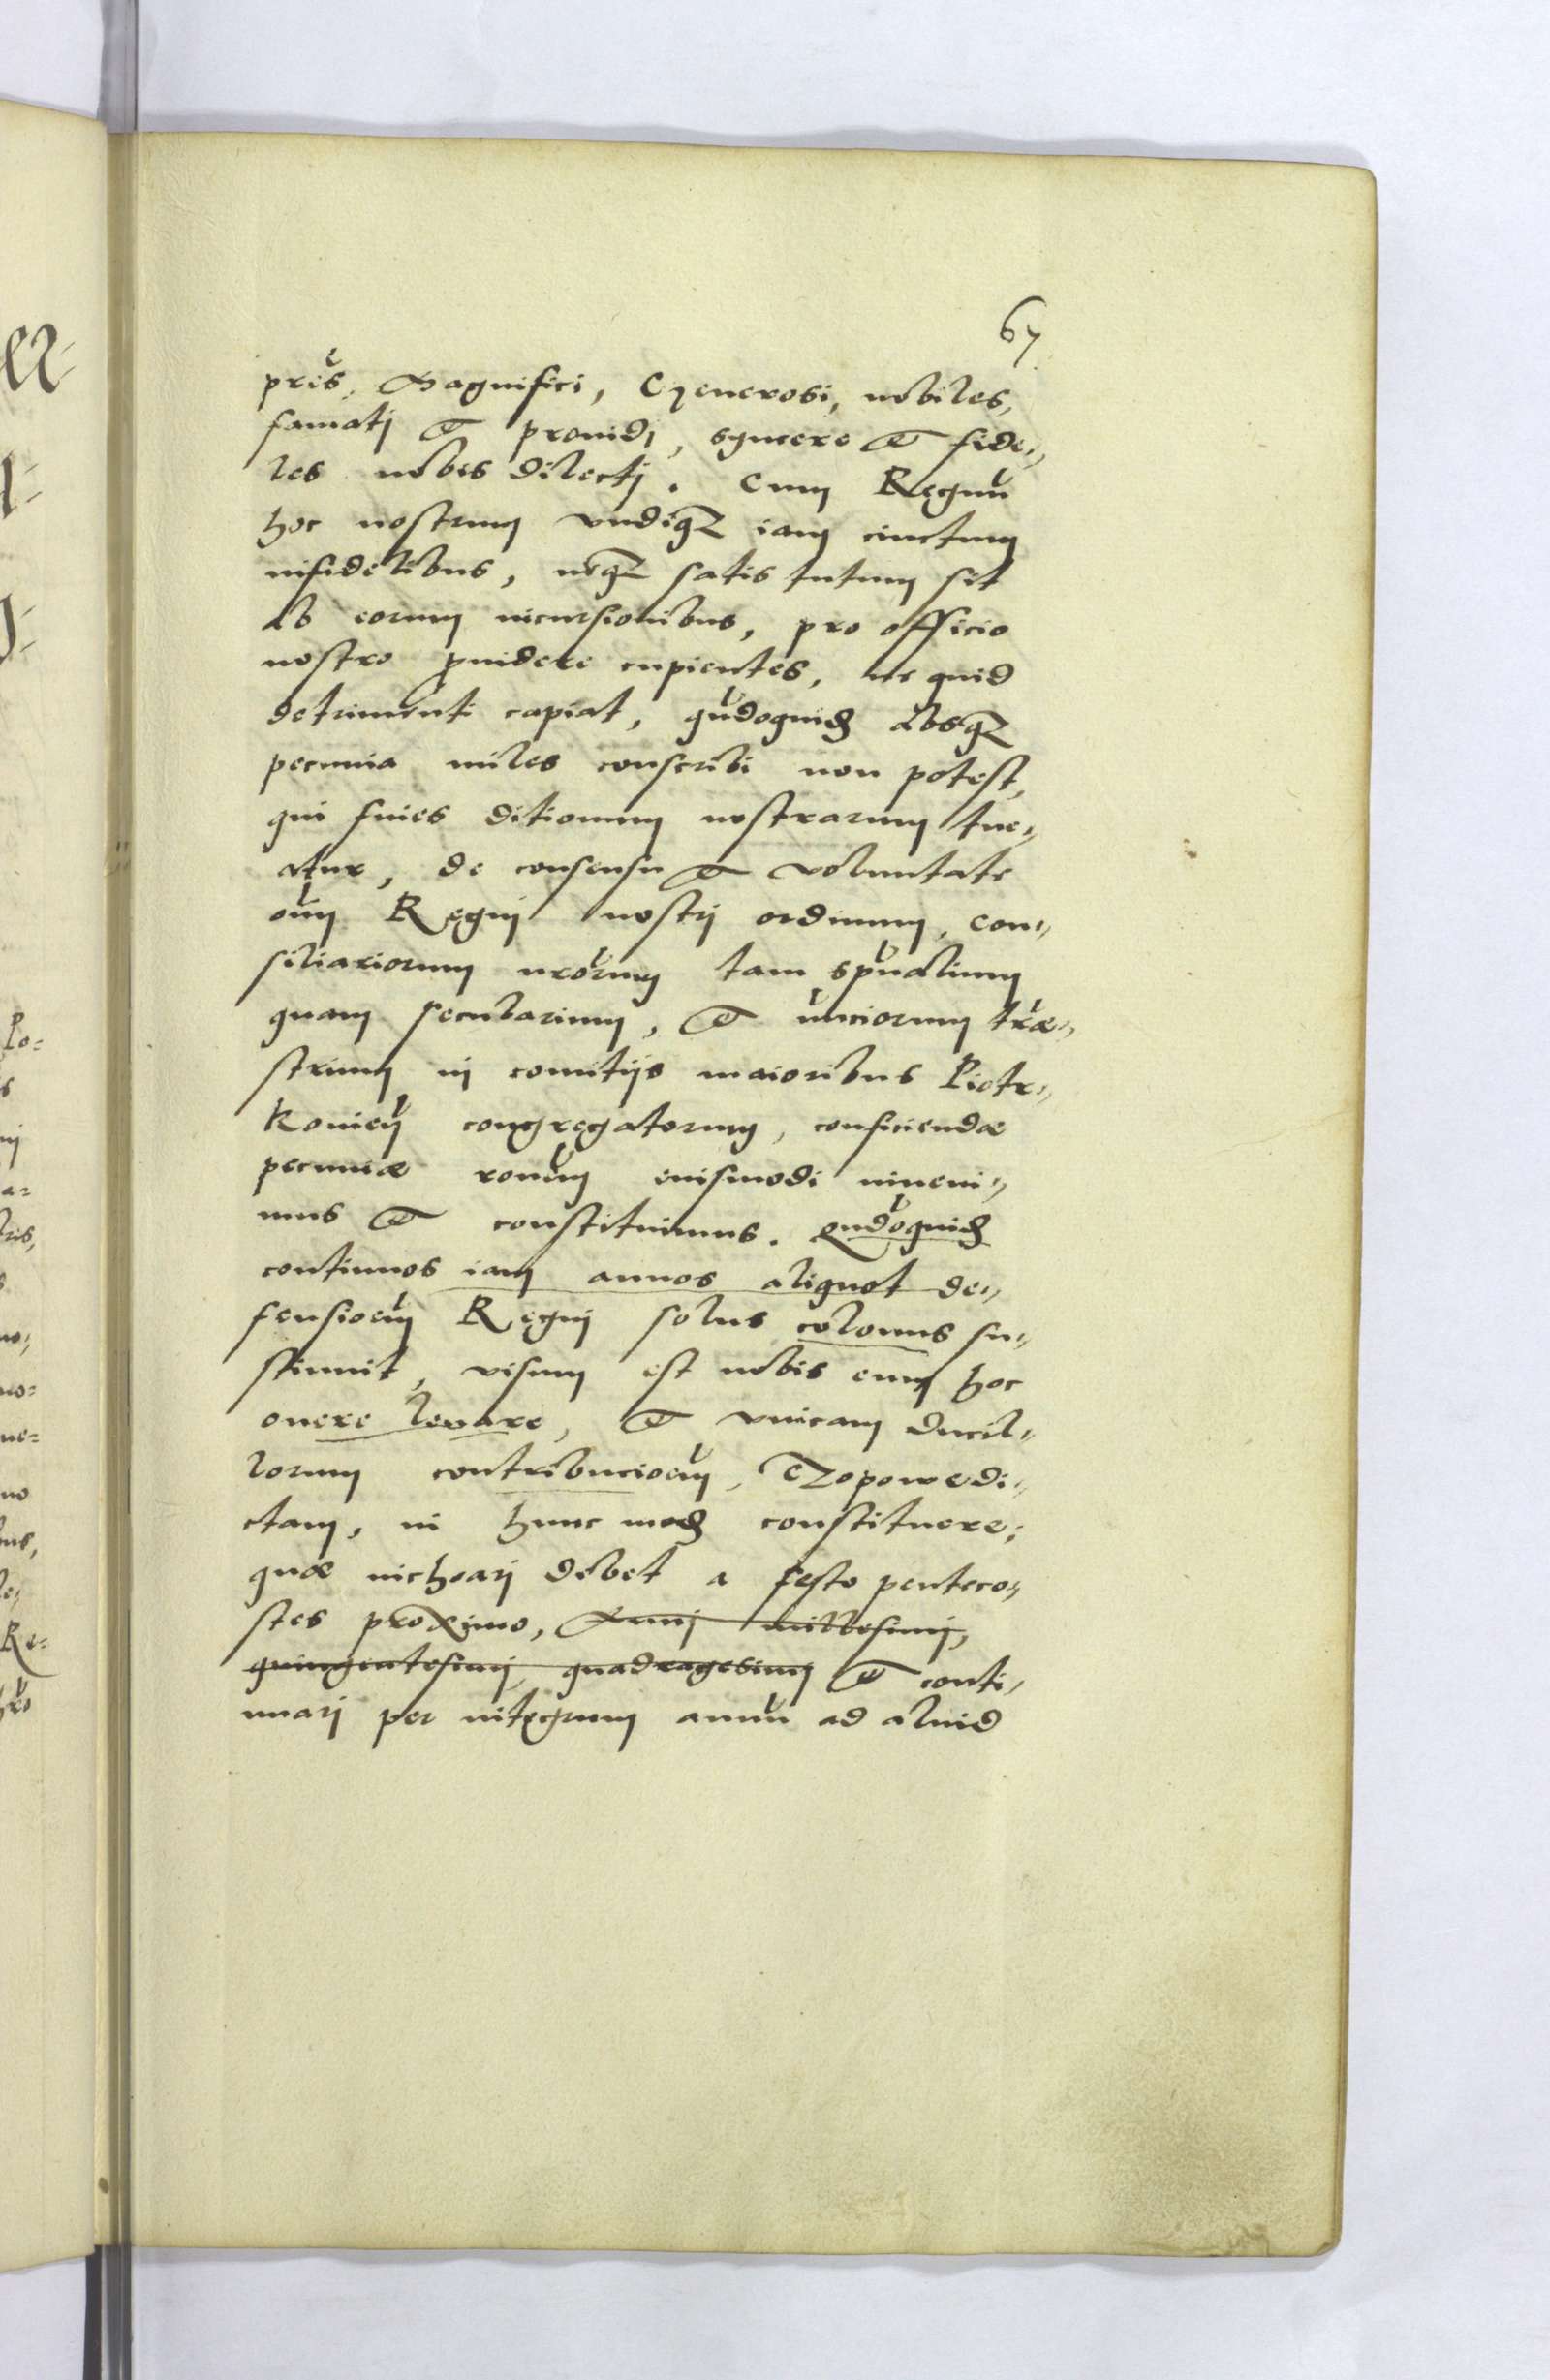 67
pres, Magnifici, Generosi, nobiles,
famatj et prouidj, syncere et fide„
les nobis dilectj. Cum Regnu
hoc nostrum vndiq3 iam cinctum
infidelibus, neq3 satis tutum sit
ab eorum incursionibus, pro officio
nostro puidere cupientes, ne quid
detrimenti capiat, qudoquid absq3
pecunia miles conscribi non potest,
qui fines ditionum nostrarum tue„
atur, de consensu et voluntate
oium Regnj nostrj ordinum, con„
siliariorum nrorum tam spualium
quam secularium, et nunciorum trae„
strium in comitijs maioribus Piotr„
kovien congregatorum, conficiendae
pecuniae ronem eiusmodi inueni„
mus et constituimus. Qudoquid
continuos iam annos aliquot de„
fensioem Regnj solus colonus su„
stinuit, visum est nobis eum hoc
onere levare, et vnicam ducil„
lorum contribucioem, Czopowe di„
ctam, in hunc mod constituere;
quae inchoarj debet a festo penteco„
stes proximo, Annj millesimj,
quingentesimj, quadragesimj et conti„
nuarj per integrum annu ad aliud